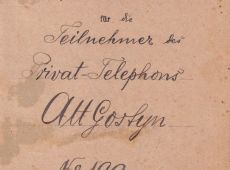 für die
Teilnehmer des
Privat-Telephons
Alt Gostyn
No